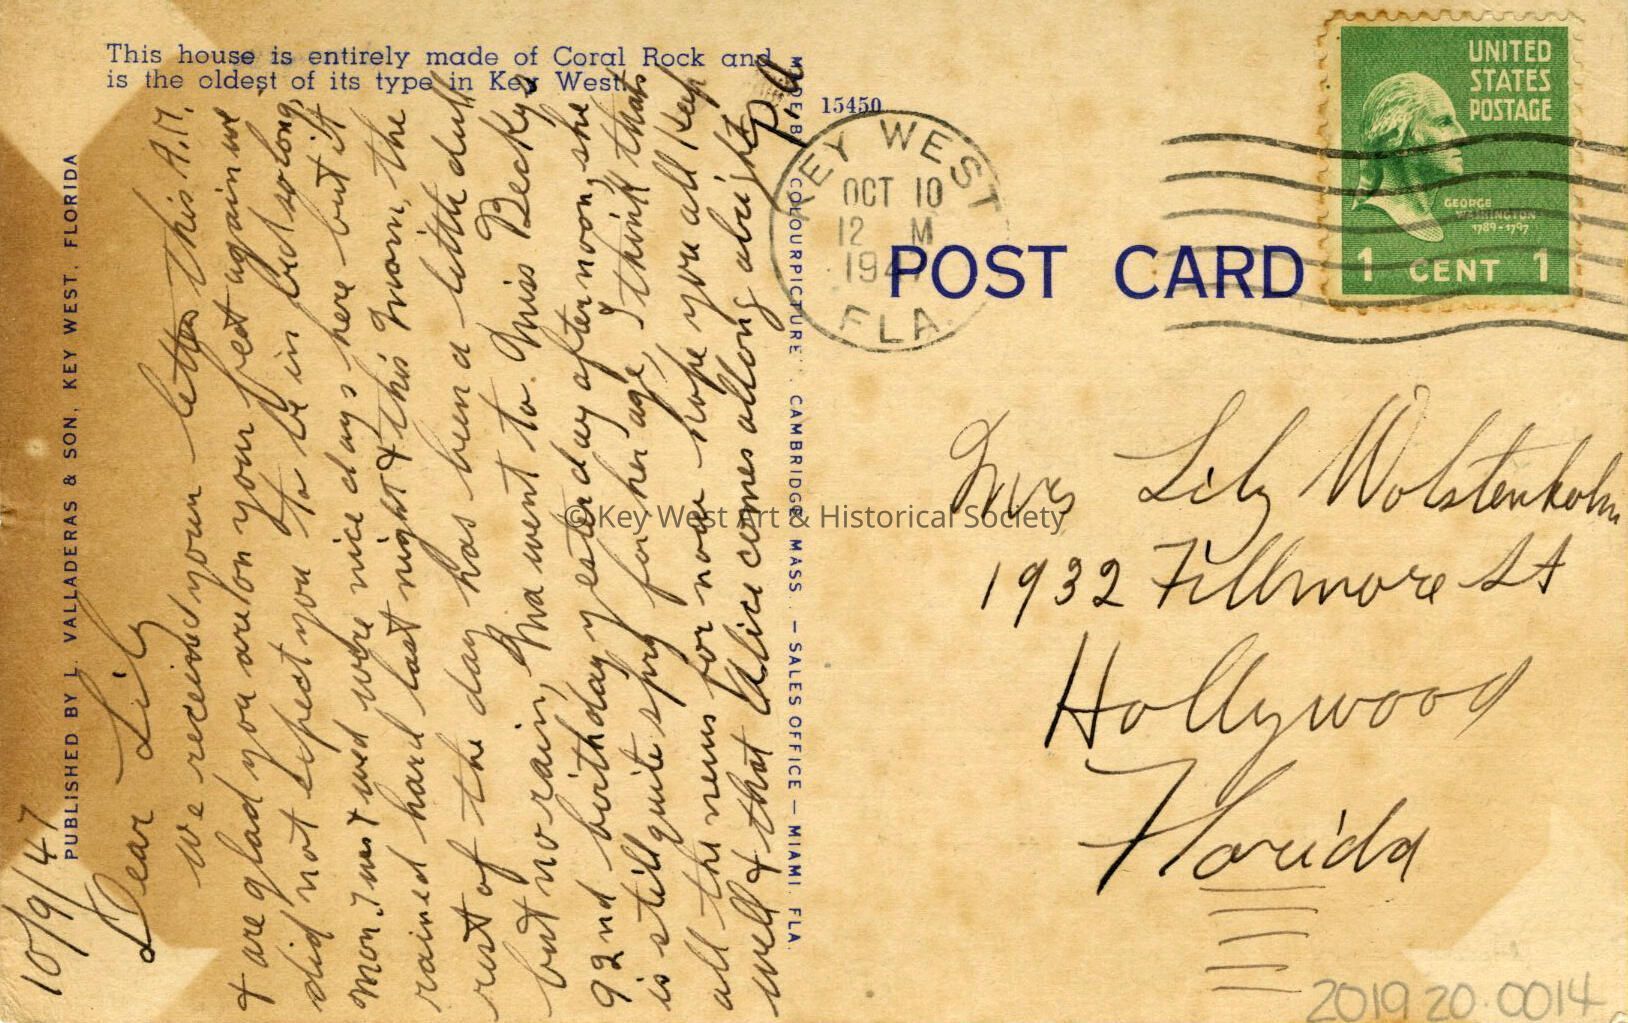 This house is entirely made of Coral Rock and
is the oldest of its type in Key West.
PUBLISHED BY L. VALLADERAS & SON, KEY WEST, FLORIDA
10/9/47
Dear Lily
We received your letter this A.M.
& are glad you are on your feet again we
did not expect you to be in bed so long,
Mon. Tues & wed were nice days here but it
rained hard last night & this morn, the
rest of the day has been a little dull
but no rain, Ma went to Miss Becky's
92nd birthday yesterday afternoon, she
is still quite spry for her age, I think thats
all the news for now hope you all keep
well & that Alice comes allong alright
Pa
MADE BY COLOURPICTURE. CAMBRIDGE MASS. — SALES OFFICE — MIAMI. FLA.
15450
KEY WEST
OCT 10
12 M
FLA.
POST CARD
UNITED
STATES
POSTAGE
GEORGE
WASHINGTON
1789-1797
1 CENT 1
Mrs Lily Wolstenholm
1932 Fillmore St
Hollywood
Florida
© Key West Art & Historical Society
2019 20.0014